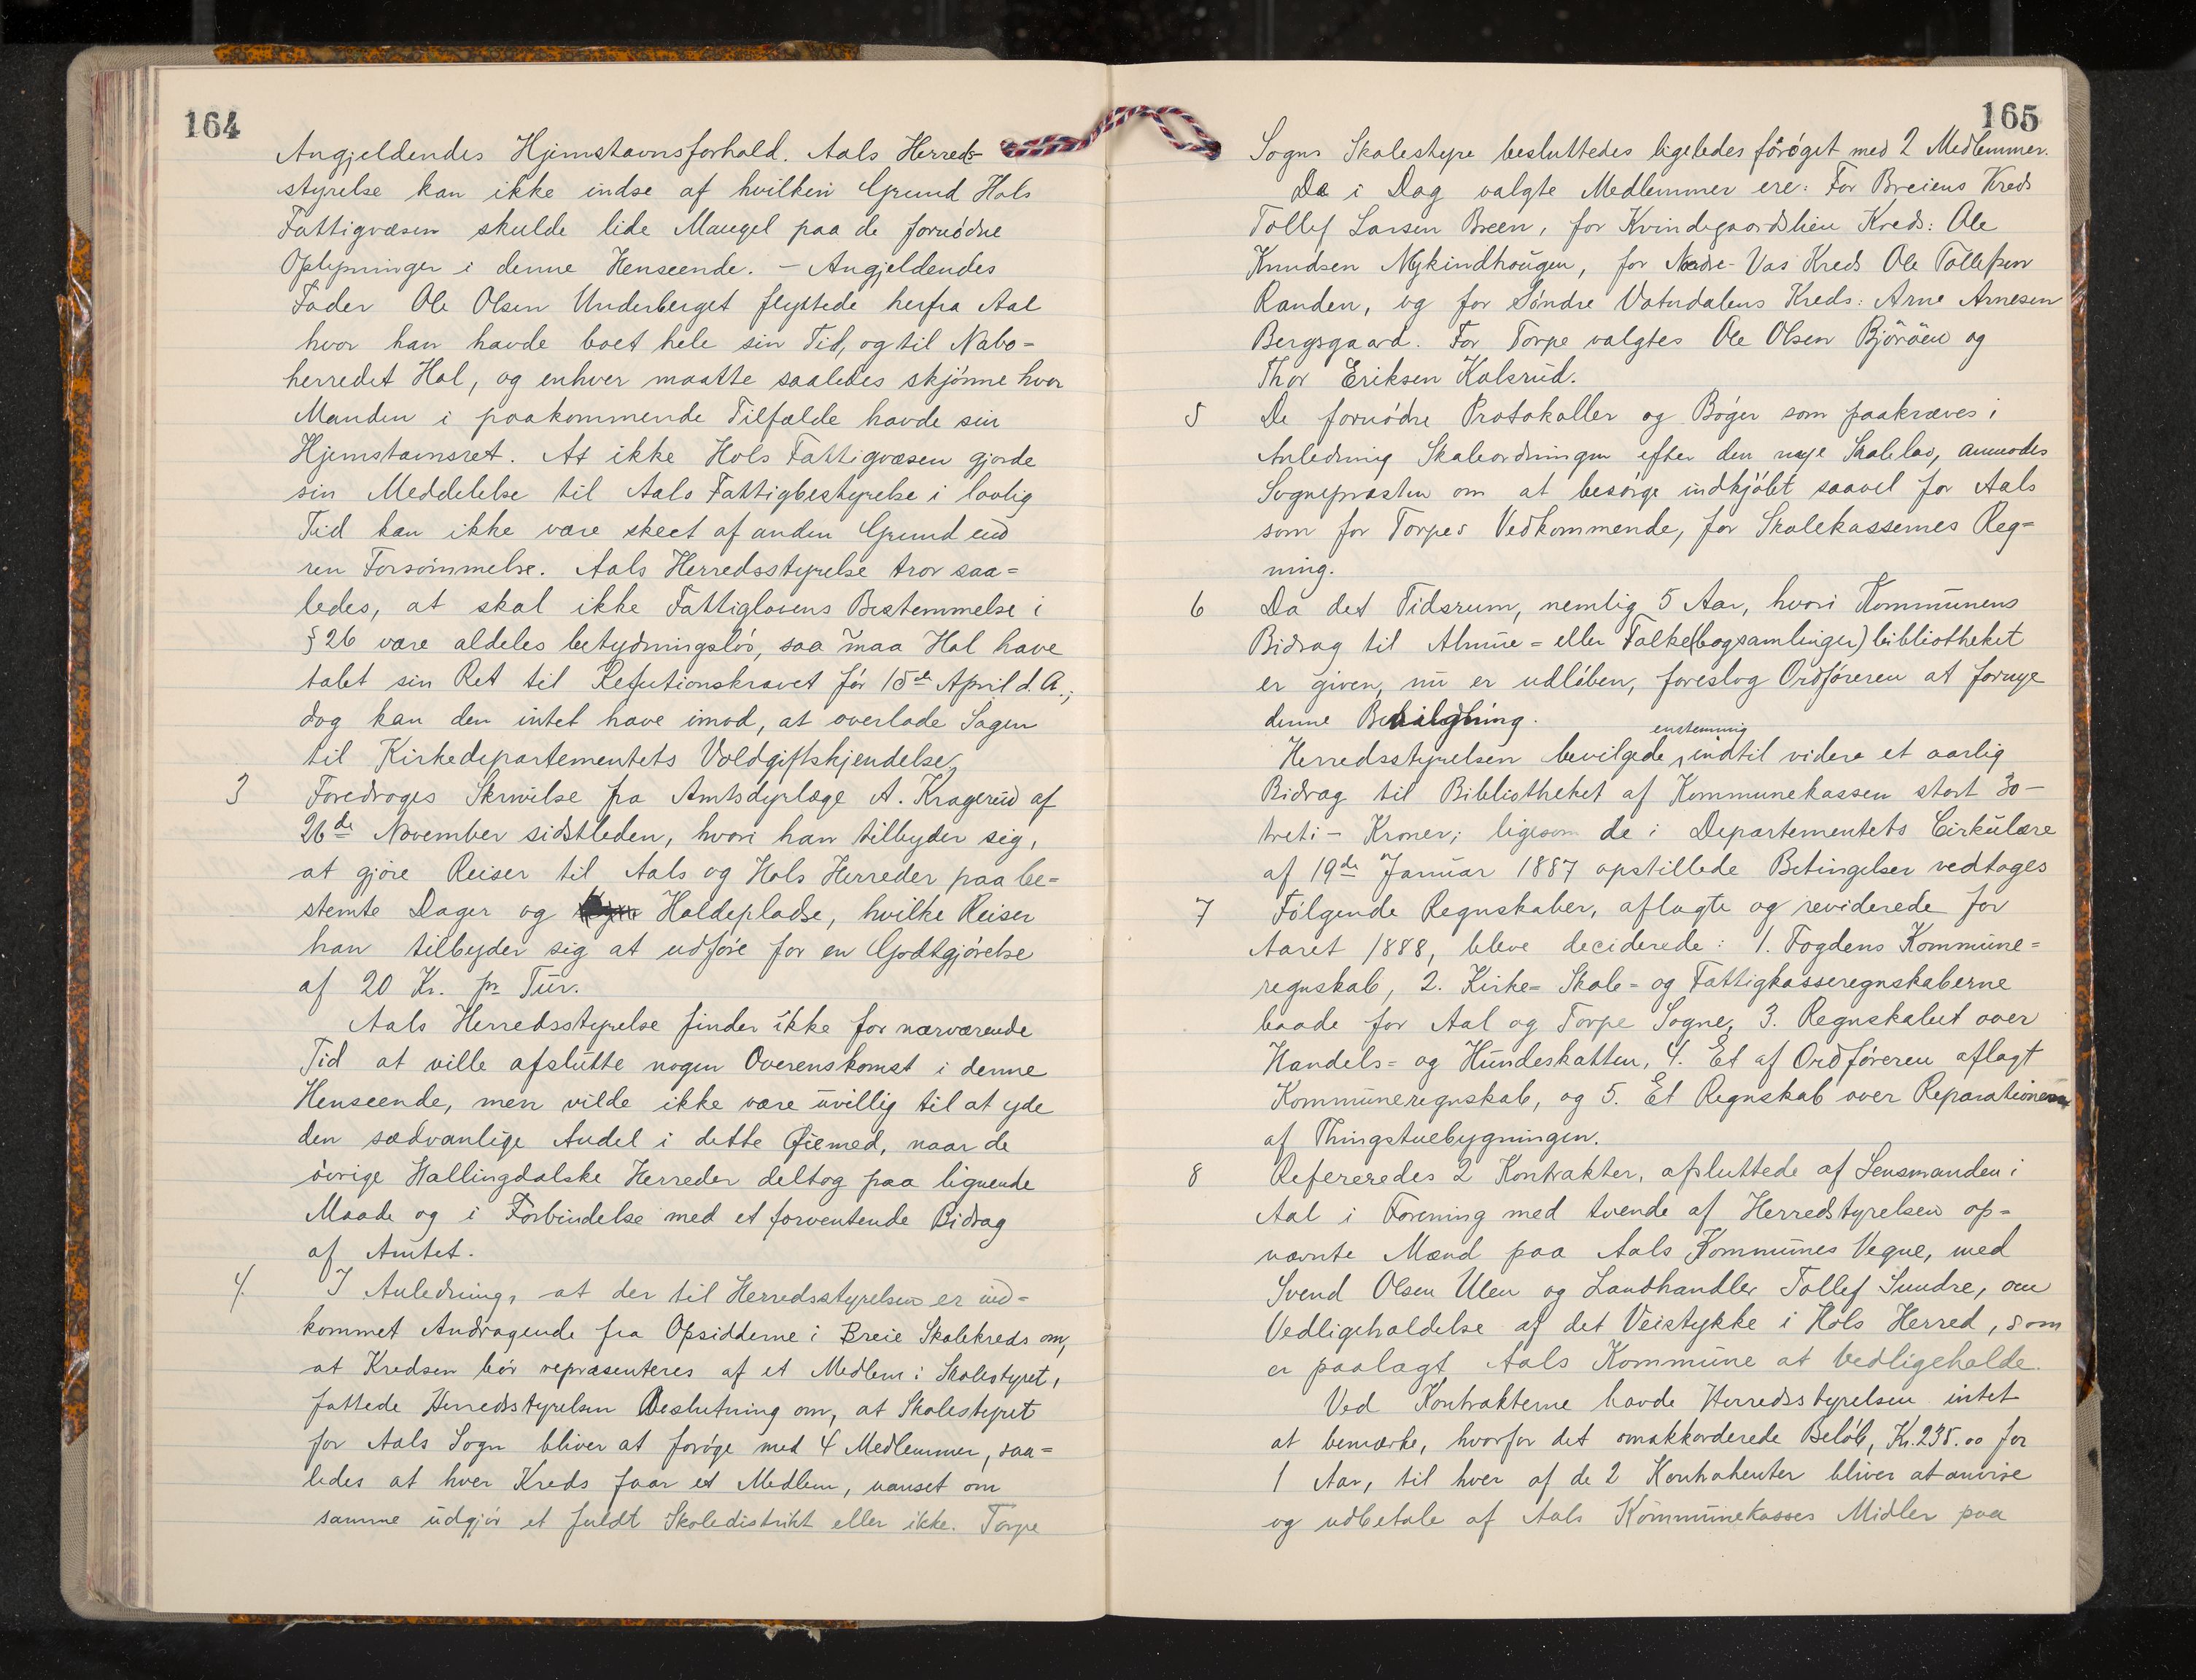 164
Angjeldendes Hjemstavnsforhold. Aals Herreds-
styrelse kan ikke indse af hvilken Grund Hols
Fattigvæsen skulde lide Mangel paa de fornødne
Oplysninger i denne Henseende. – Angjeldendes
Fader Ole Olsen Underberget flyttede herfra Aal
hvor han havde boet hele sin Tid, og til Nabo=
herredet Hol, og enhver maatte saaledes skjønne hvor
Manden i paakommende Tilfælde havde sin
Hjemstavnsret. At ikke Hols Fattigvæsen gjorde
sin Meddelelse til Aals Fattigbestyrelse i lovlig
Tid kan ikke være skeet af anden Grund end
ren Forsømmelse. Aals Herredsstyrelse tror saa=
ledes, at skal ikke Fattiglovens Bestemmelse i
§ 26 være aldeles betydningsløs, saa maa Hol have
tabt sin Ret til Refutionskravet før 15de April d. A.;
dog kan den intet have imod, at overlade Sagen
til Kirkedepartementets Voldgiftskjendelse.
3 Foredroges Skrivelse fra Amtsdyrlæge A. Kragerud af
26de November sidstleden, hvori han tilbyder sig,
at gjøre Reiser til Aals og Hols Herreder paa be=
stemte Dager og Holdepladse, hvilke Reiser
han tilbyder sig at udføre for en Godtgjørelse
af 20 Kr. pr Tur.
Aals Herredsstyrelse finder ikke for nærværende
Tid at ville afslutte nogen Overenskomst i denne
Henseende, men vilde ikke være uvillig til at yde
den sædvanlige Andel i dette Øiemed, naar de
øvrige Hallingdalske Herreder deltog paa lignende
Maade og i Forbindelse med et forventende Bidrag
af Amtet.
4. I Anledning, at der til Herredsstyrelsen er ind=
kommet Andragende fra Opsidderne i Breie Skolekreds om,
at Kredsen bør repræsenteres af et Medlem i Skolestyret,
fattede Herredsstyrelsen Beslutning om, at Skolestyret
for Aals Sogn bliver at forøge med 4 Medlemmer, saa=
ledes at hver Kreds faar et Medlem, uanset om
samme udgjør et fuldt Skoledistrikt eller ikke. Torpe
165
Sogns Skolestyre besluttedes ligeledes forøget med 2 Medlemmer.
De i Dag valgte Medlemmer ere: For Breiens Kreds
Tollef Larsen Breen, for Kvindegaardslien Kreds: Ole
Knudsen Nykindhougen, for Nedre-Vas Kreds Ole Tollefsen
Randen, og for Søndre Vatndalens Kreds: Arne Arnesen
Bergsgaard. For Torpe valgtes Ole Olsen Bjøröen og
Thor Eriksen Kolsrud.
5 De fornødne Protokoller og Bøger som paakræves i
Anledning Skoleordningen efter den nye Skolelov, anmodes
Sognepræsten om at besørge indkjøbt saavel for Aals
som for Torpes Vedkommende, for Skolekassernes Reg=
ning.
6 Da det Tidsrum, nemlig 5 Aar, hvori Kommunens
Bidrag til Almue= eller Folke(bogsamlinger) bibliotheket
er given, nu er udløben, foreslog Ordføreren at fornye
denne Bevilgning.
enstemmig
Herredsstyrelsen bevilgede, indtil videre et aarlig
Bidrag til Bibliotheket af Kommunekassen stort 30 –
treti – Kroner; ligesom de i Departementets Cirkulære
af 19de Januar 1887 opstillede Betingelser vedtages
7 Følgende Regnskaber, aflagte og reviderede for
Aaret 1888, bleve deciderede: 1. Fogdens Kommune=
regnskab, 2. Kirke= Skole= og Fattigkasseregnskaberne
baade for Aal og Torpe Sogne, 3. Regnskabet over
Handels= og Hundeskatten, 4. Et af Ordføreren aflagt
Kommuneregnskab, og 5. Et Regnskab over Reparationen
af Thingstuebygningen.
8 Refereredes 2 Kontrakter, afsluttede af Lensmanden i
Aal i Forening med tvende af Herredstyrelsen op=
nævnte Mænd paa Aals Kommunes Vegne, med
Svend Olsen Ulen og Landhandler Tollef Sundre, om
Vedligeholdelse af det Veistykke i Hols Herred, som
er paalagt Aals Kommune at vedligeholde.
Ved Kontrakterne havde Herredsstyrelsen intet
at bemærke, hvorfor det omakkorderede Beløb, Kr. 235.00 for
1 Aar, til hver af de 2 Kontrahenter bliver at anvise
og udbetale af Aals Kommunekasses Midler paa